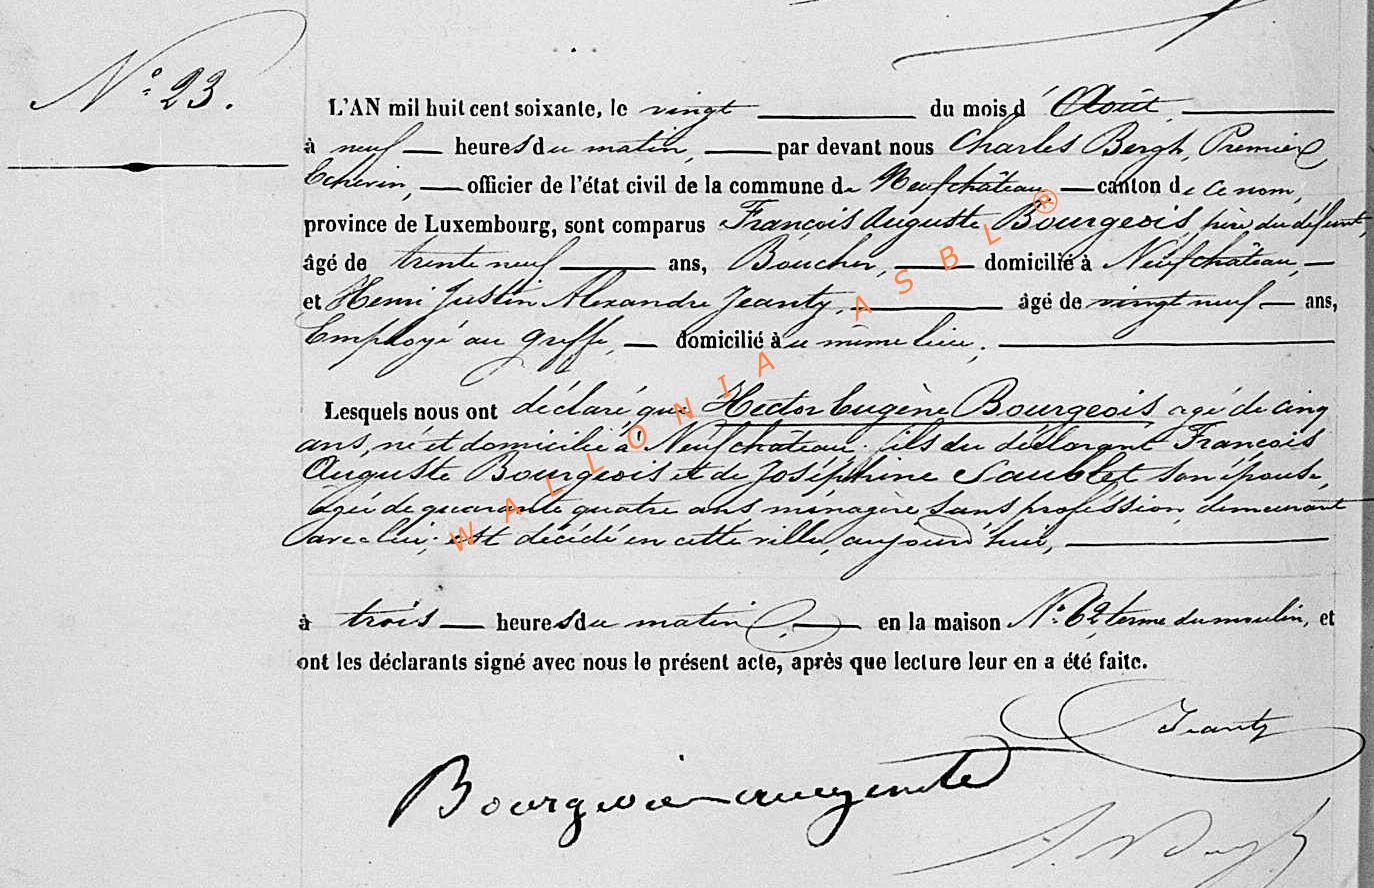 N.° 23.
L'AN mil huit cent soixante, le vingt du mois d'Août,
à neuf heures du matin, par devant nous Charles Bergh, Premier
Echevin, officier de l'état civil de la commune de Neufchâteau canton de ce nom,
province de Luxembourg, sont comparus François Auguste Bourgeois, père du défunt,
âgé de trente neuf ans, Boucher, domicilié à Neufchâteau,
et Henri Justin Alexandre Jeanty, âgé de vingt neuf ans,
Employé au greffe, domicilié au même lieu.
Lesquels nous ont déclaré que Hector Eugène Bourgeois agé de cinq
ans, né et domicilié à Neufchâteau, fils du déclarant François
Auguste Bourgeois et de Joséphine Saublet son épouse,
agée de quarante quatre ans ménagère sans profession, demeurant
avec lui; est décédé en cette ville, aujourd'hui,
à trois heures du matin, en la maison N.° 62, terme du moulin, et
ont les déclarants signé avec nous le présent acte, après que lecture leur en a été faite.
Jeanty
Bourgeois
WALLONIA ASBL ®